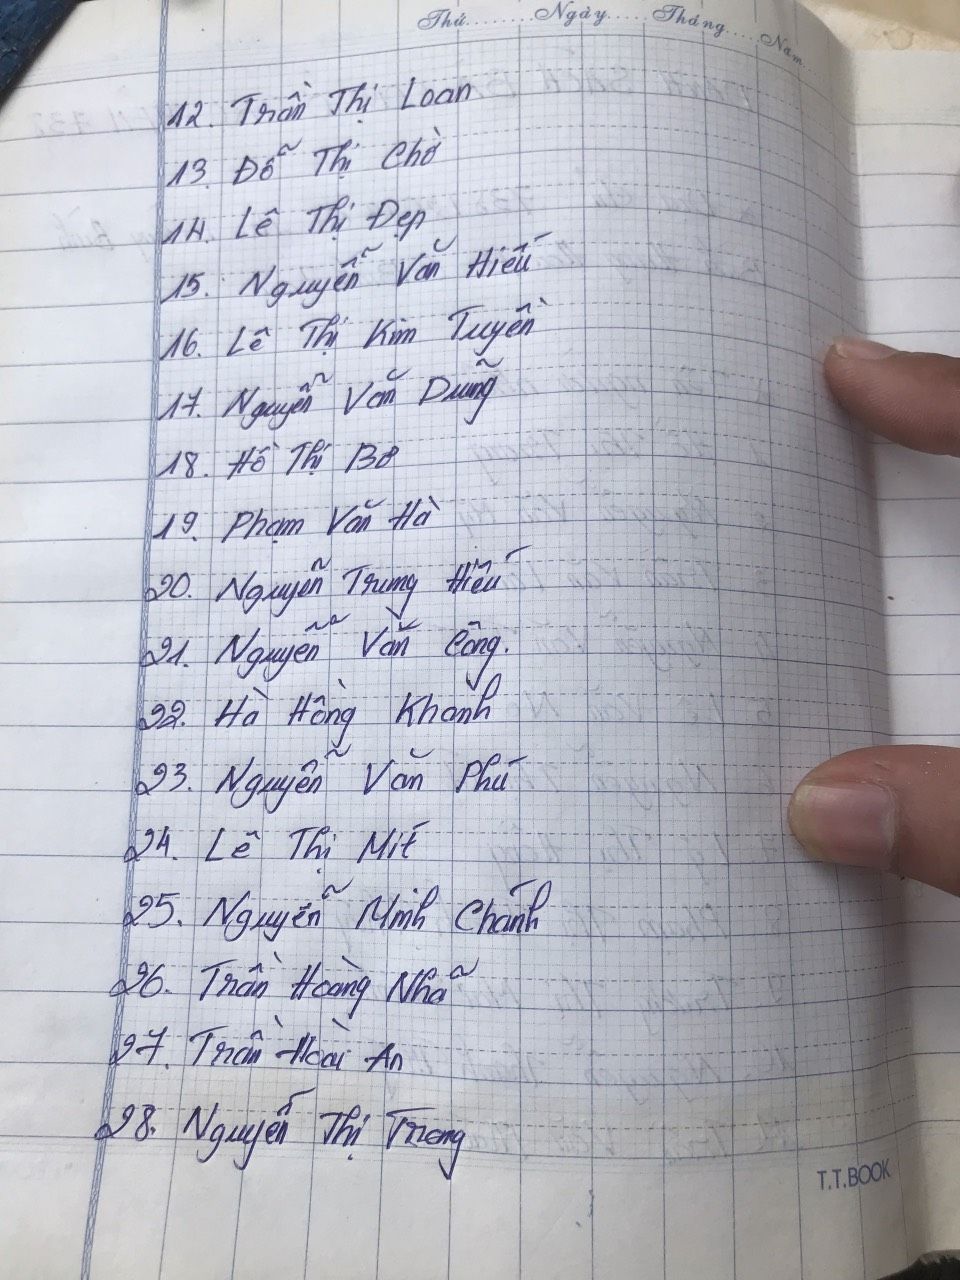 Thứ........Ngày.....Tháng.....Năm...
12. Trần Thị Loan
13. Đỗ Thị Chờ
14. Lê Thị Đẹp
15. Nguyễn Văn Hiếu
16. Lê Thị Kim Tuyền
17. Nguyễn Văn Dũng
18. Hồ Thị Bơ
19. Phạm Văn Hà
20. Nguyễn Trung Hiếu
21. Nguyễn Văn Công.
22. Hà Hồng Khanh
23. Nguyễn Văn Phú
24. Lê Thị Mít
25. Nguyễn Minh Chánh
26. Trần Hoàng Nhã
27. Trần Hoài An
28. Nguyễn Thị Trang
T.T.BOOK